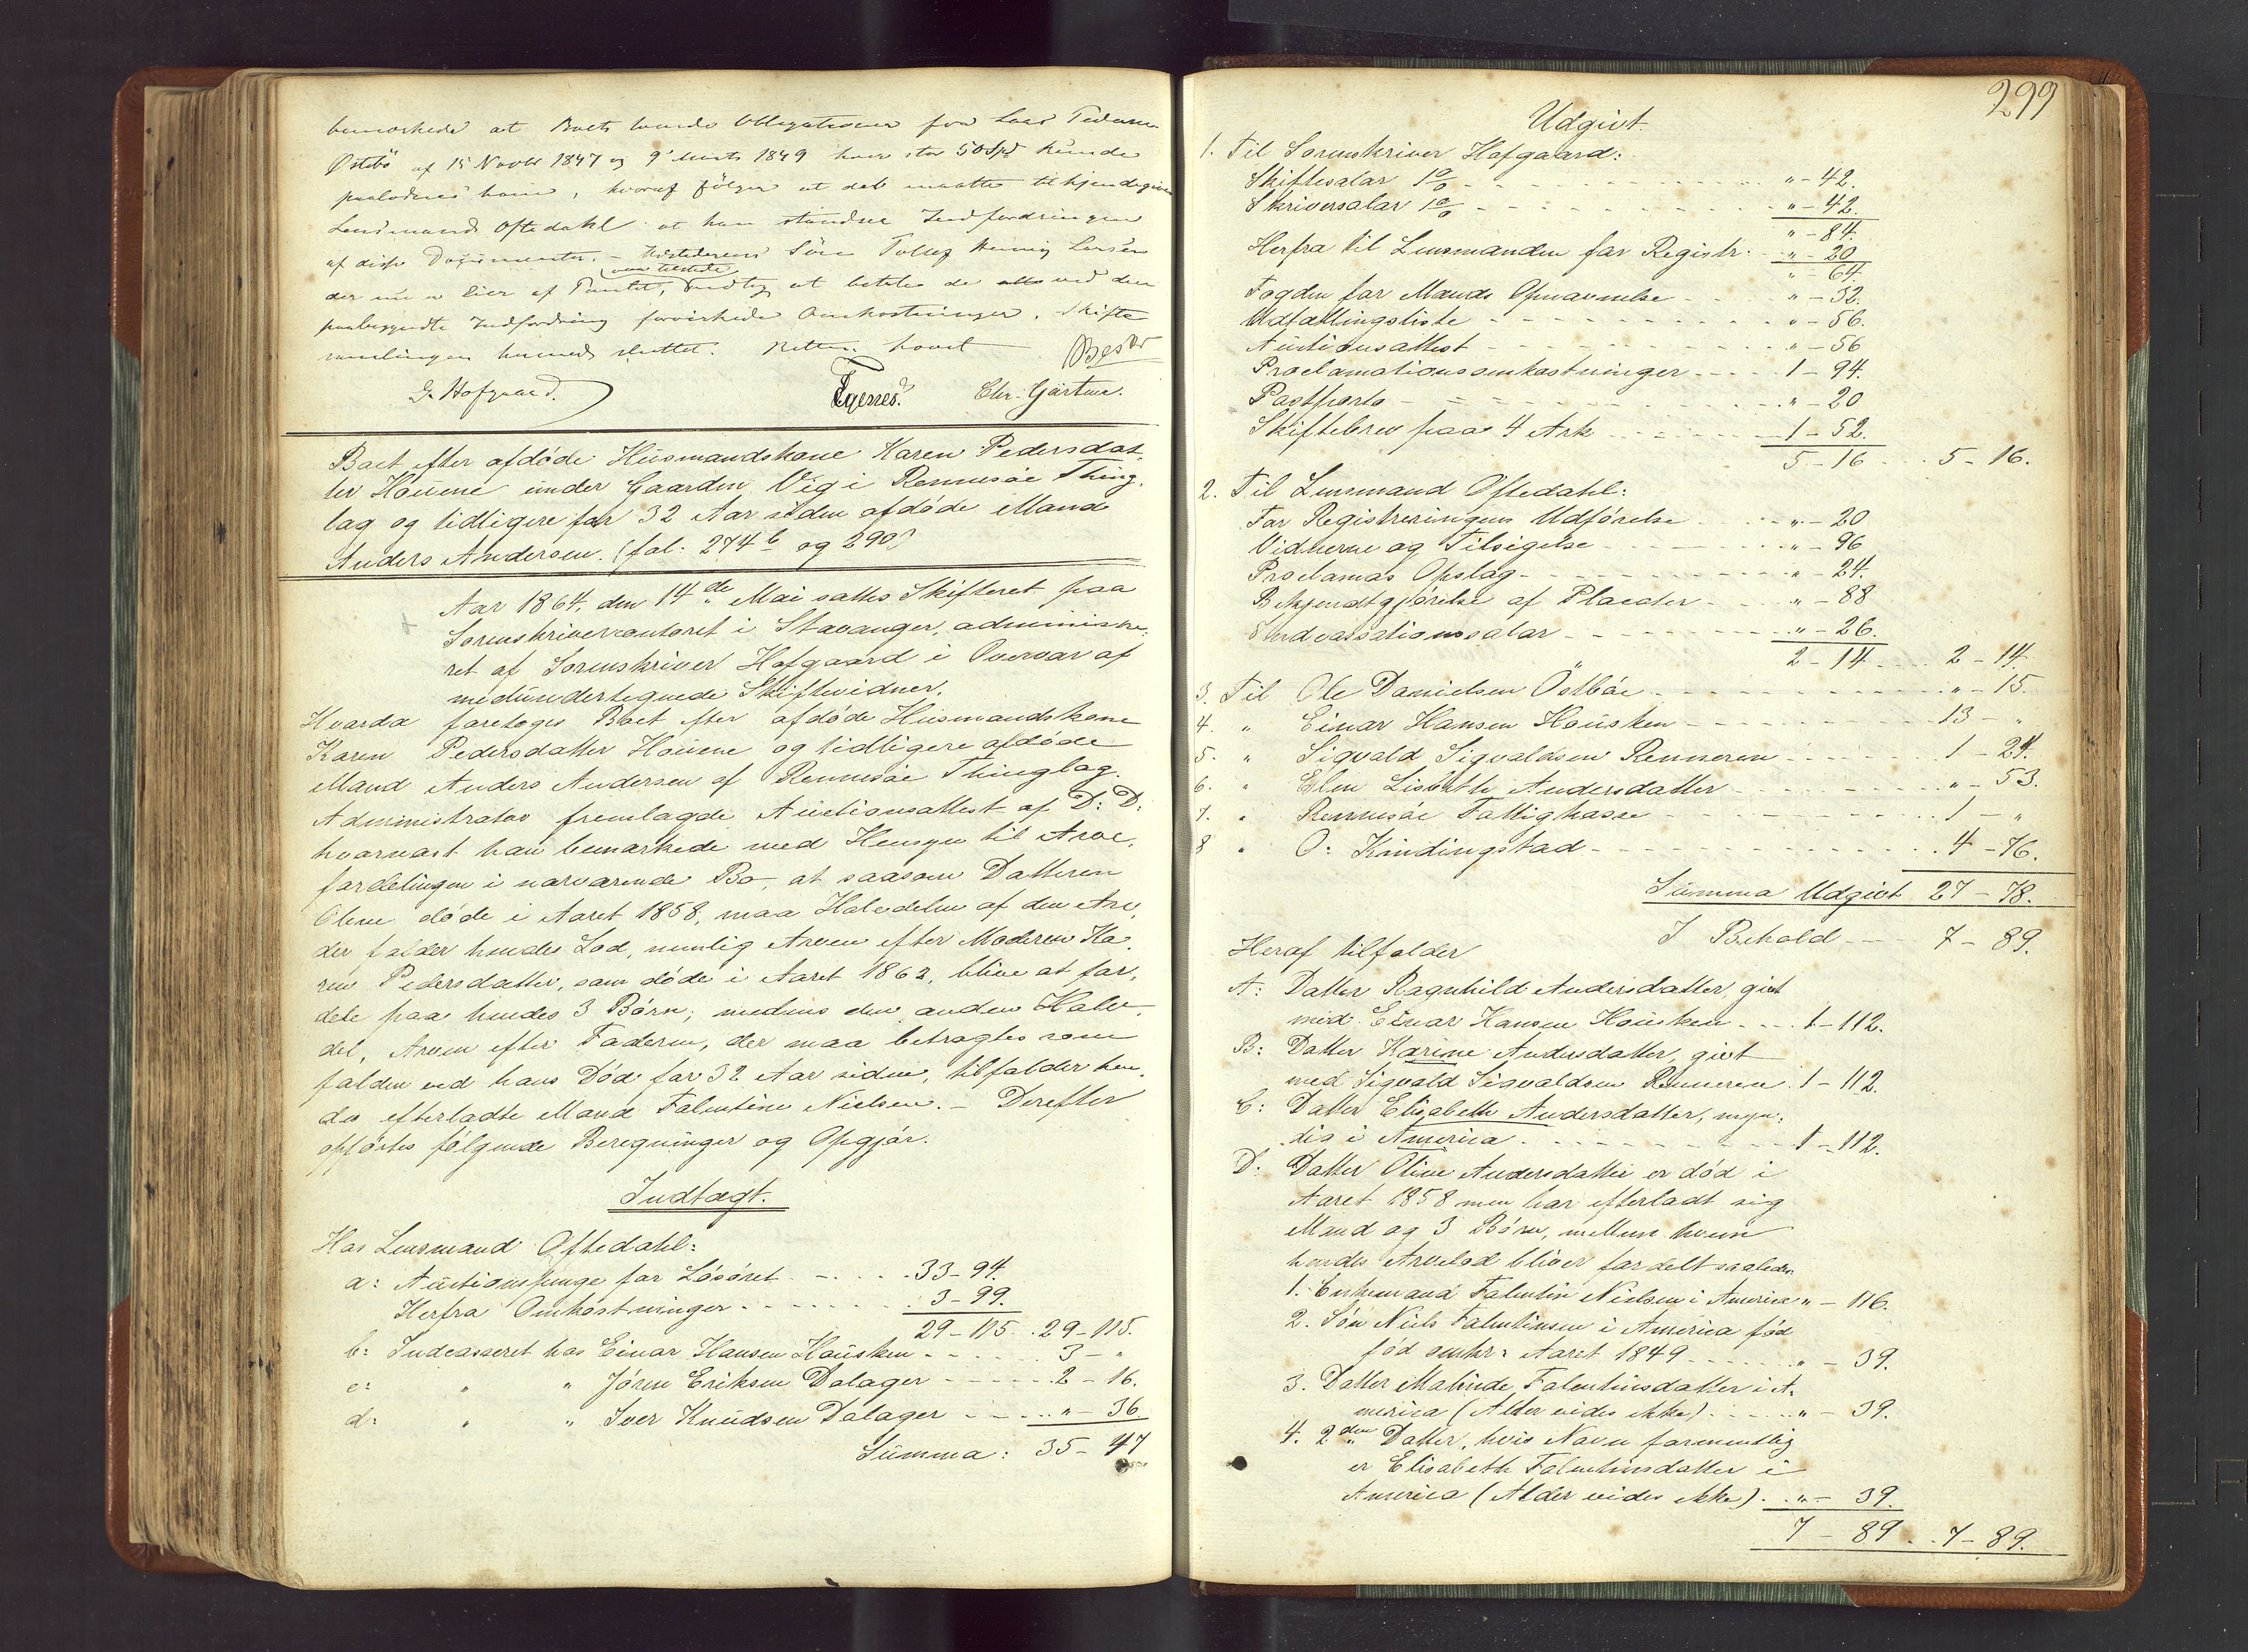 bemærkede at Boets tvende Obligationer fra Lars Pedersen
Østbö af 15 Novbr 1847 og 9de Marts 1849 hver stor 50 Spd kunde
paalodnes ham, hvoraf følger at det maatte tilkjendegives
Lensmand Oftedahl at han standser Indfordringen
af disse Documenter. – Udstederens Sön Tollef Larsen
var tilstede
der nu er Eier af Pantet, vedtog at betale de ved den
paabegyndte Indfordring forvirkede Omkostninger. Skifte
samlingen hermed sluttet. Retten hævet
G. Hofgaard. Egenes. Chr. Gärtner.
Boet efter afdøde Huusmandskone Karen Pedersdat-
ter Houene under Gaarden Vig i Rennesøe Thing-
lag og tidligere for 32 Aar siden afdøde Mand
Anders Andersen. (fol. 274b og 290)
Aar 1864, den 14de Mai sattes Skifteret paa
Sorenskrivercontoret i Stavanger, administre-
ret af Sorenskriver Hofgaard i Overvær af
medundertegnede Skiftevidner.
Hvorda foretoges Boet efter afdøde Huusmandskone
Karen Pedersdatter Houene og tidligere afdøde
Mand Anders Andersen af Rennesøe Thinglag.
Administrator fremlagde Auctionsattest af D: D:
hvornæst han bemærkede med Hensyn til Arve-
fordelingen i nærværende Bo, at saasom Datteren
Olene døde i Aaret 1858, maa Halvdelen af den Arv,
der falder hendes Lod, nemlig Arven efter Moderen Ka-
ren Pedersdatter, som døde i Aaret 1863, blive at for-
dele paa hendes 3 Børn; medens den anden Halv-
del, Arven efter Faderen, der maa betragtes som
falden ved hans Død for 32 Aar siden, tilfalder hen-
des efterladte Mand Falentine Nielsen. – Derefter
opførtes følgende Beregninger og Opgjør.
Indtægt.
Hos Lensmand Oftedahl:
a: Auctionspenge for Løsøret . . . . 33 – 94.
Herfra Omkostninger . . . . 3 – 99.
29 – 115. . 29 – 115.
b: Indcasseret hos Einar Hansen Housken . . . 3 – "
c: " " Jøren Eriksen Dalager . . . 2 – 16.
d: " " Iver Knudsen Dalager . . . " – 36.
Summa: 35 – 47
299
Udgivt.
1. Til Sorenskriver Hofgaard:
Skiftesalær 1% . . . " – 42.
Skriversalær 1% . . . " – 42.
" – 84.
Herfra til Lensmanden for Registr. . . " – 20
" – 64.
Fogden for Mænds Opnævnelse . . . " – 32.
Udfællingsliste . . . " – 56.
Auctionsattest . . . " – 56
Proclamationsomkostninger . . . 1 – 94.
Postporto . . . " – 20
Skiftebrev paa 4 Ark . . . 1 – 52.
5 – 16 . . . 5 – 16.
2. Til Lensmand Oftedahl:
For Registreringens Udførelse . . . " – 20
Vidnerne og Tilsigelse . . . " – 96
Proclamas Opslag . . . " – 24.
Bekjendtgjørelse af Placater . . . " – 88
Indcassationssalær . . . " – 26.
2 – 14 . . . 2 – 14.
3. Til Ole Danielsen Östbøe . . . " – 15.
4. " Einar Hansen Housken . . . 13 – "
5. " Sigvald Sigvaldsen Renneren . . . 1 – 24.
6. " Elen Lisbeth Andersdatter . . . " – 53.
7. " Rennesøe Fattigkasse . . . 1 – "
8 " O: Kindingstad . . . 4 – 76.
Summa Udgivt 27 – 78.
I Behold . . . 7 – 89.
Heraf tilfalder
A: Datter Ragnhild Andersdatter, givt
med Einar Hansen Housken . . . 1 – 112.
B: Datter Karine Andersdatter, givt
med Sigvald Sigvaldsen Renneren . 1 – 112.
C: Datter Elisabeth Andersdatter, myn-
dig i America . . . 1 – 112.
D: Datter Oline Andersdatter er død i
Aaret 1858 men har efterladt sig
Mand og 3 Børn, mellem hvem
hendes Arvelod bliver fordelt saaledes
1. Enkemand Falentin Nielsen i America " – 116.
2. Søn Niels Falentinsen i America fød
fød omkr: Aaret 1849 . . . " – 39.
3. Datter Malinde Falentinsdatter i A-
merica (Alder vides ikke) . . . " – 39.
4. 2den Datter, hvis Navn formentlig
er Elisabeth Falentinsdatter i
America (Alder vides ikke) . . " – 39.
7 – 89 . . 7 – 89.